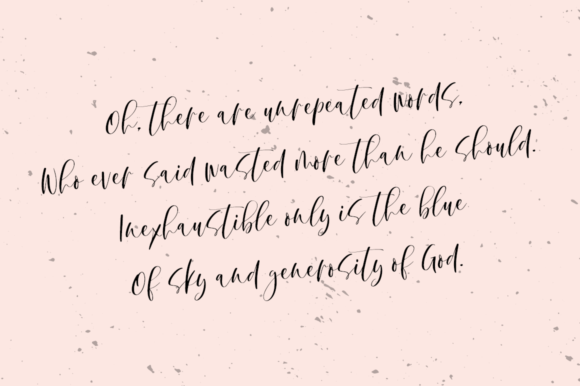 Oh, there are unrepeated words,
Who ever said wasted more than he should.
Inexhaustible only is the blue
Of sky and generosity of God.